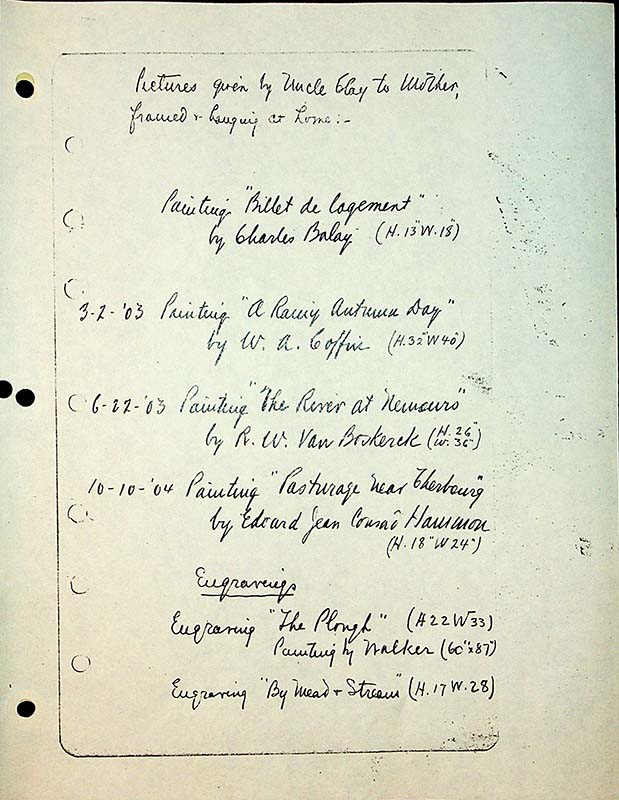 Pictures given by Uncle Clay to Mother,
framed & hanging at home:-
Painting "Billet de logement"
by Charles Balay (H. 13" W. 18")
3-2-'03 Painting "A Rainy Autumn Day"
by W. A. Coffin (H. 32" W 40")
6-22-'03 Painting "The River at Nemours"
by R. W. Van Boskerck (H. 26"
W. 36")
10-10-'04 Painting "Pasturage near Cherbourg"
by Edouard Jean Conrad Hammon
(H. 18" W 24")
Engravings
Engraving "The Plough" (H 22 W 33)
Painting by Walker (60" x 87")
Engraving "By Mead & Stream" (H. 17 W. 28)